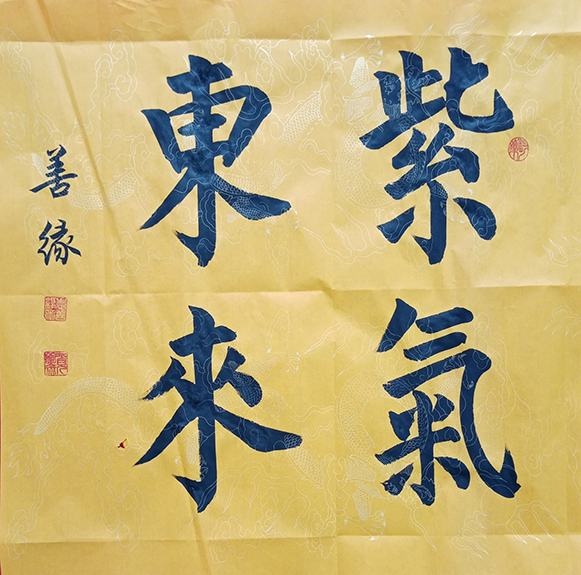 紫氣
東來
善緣